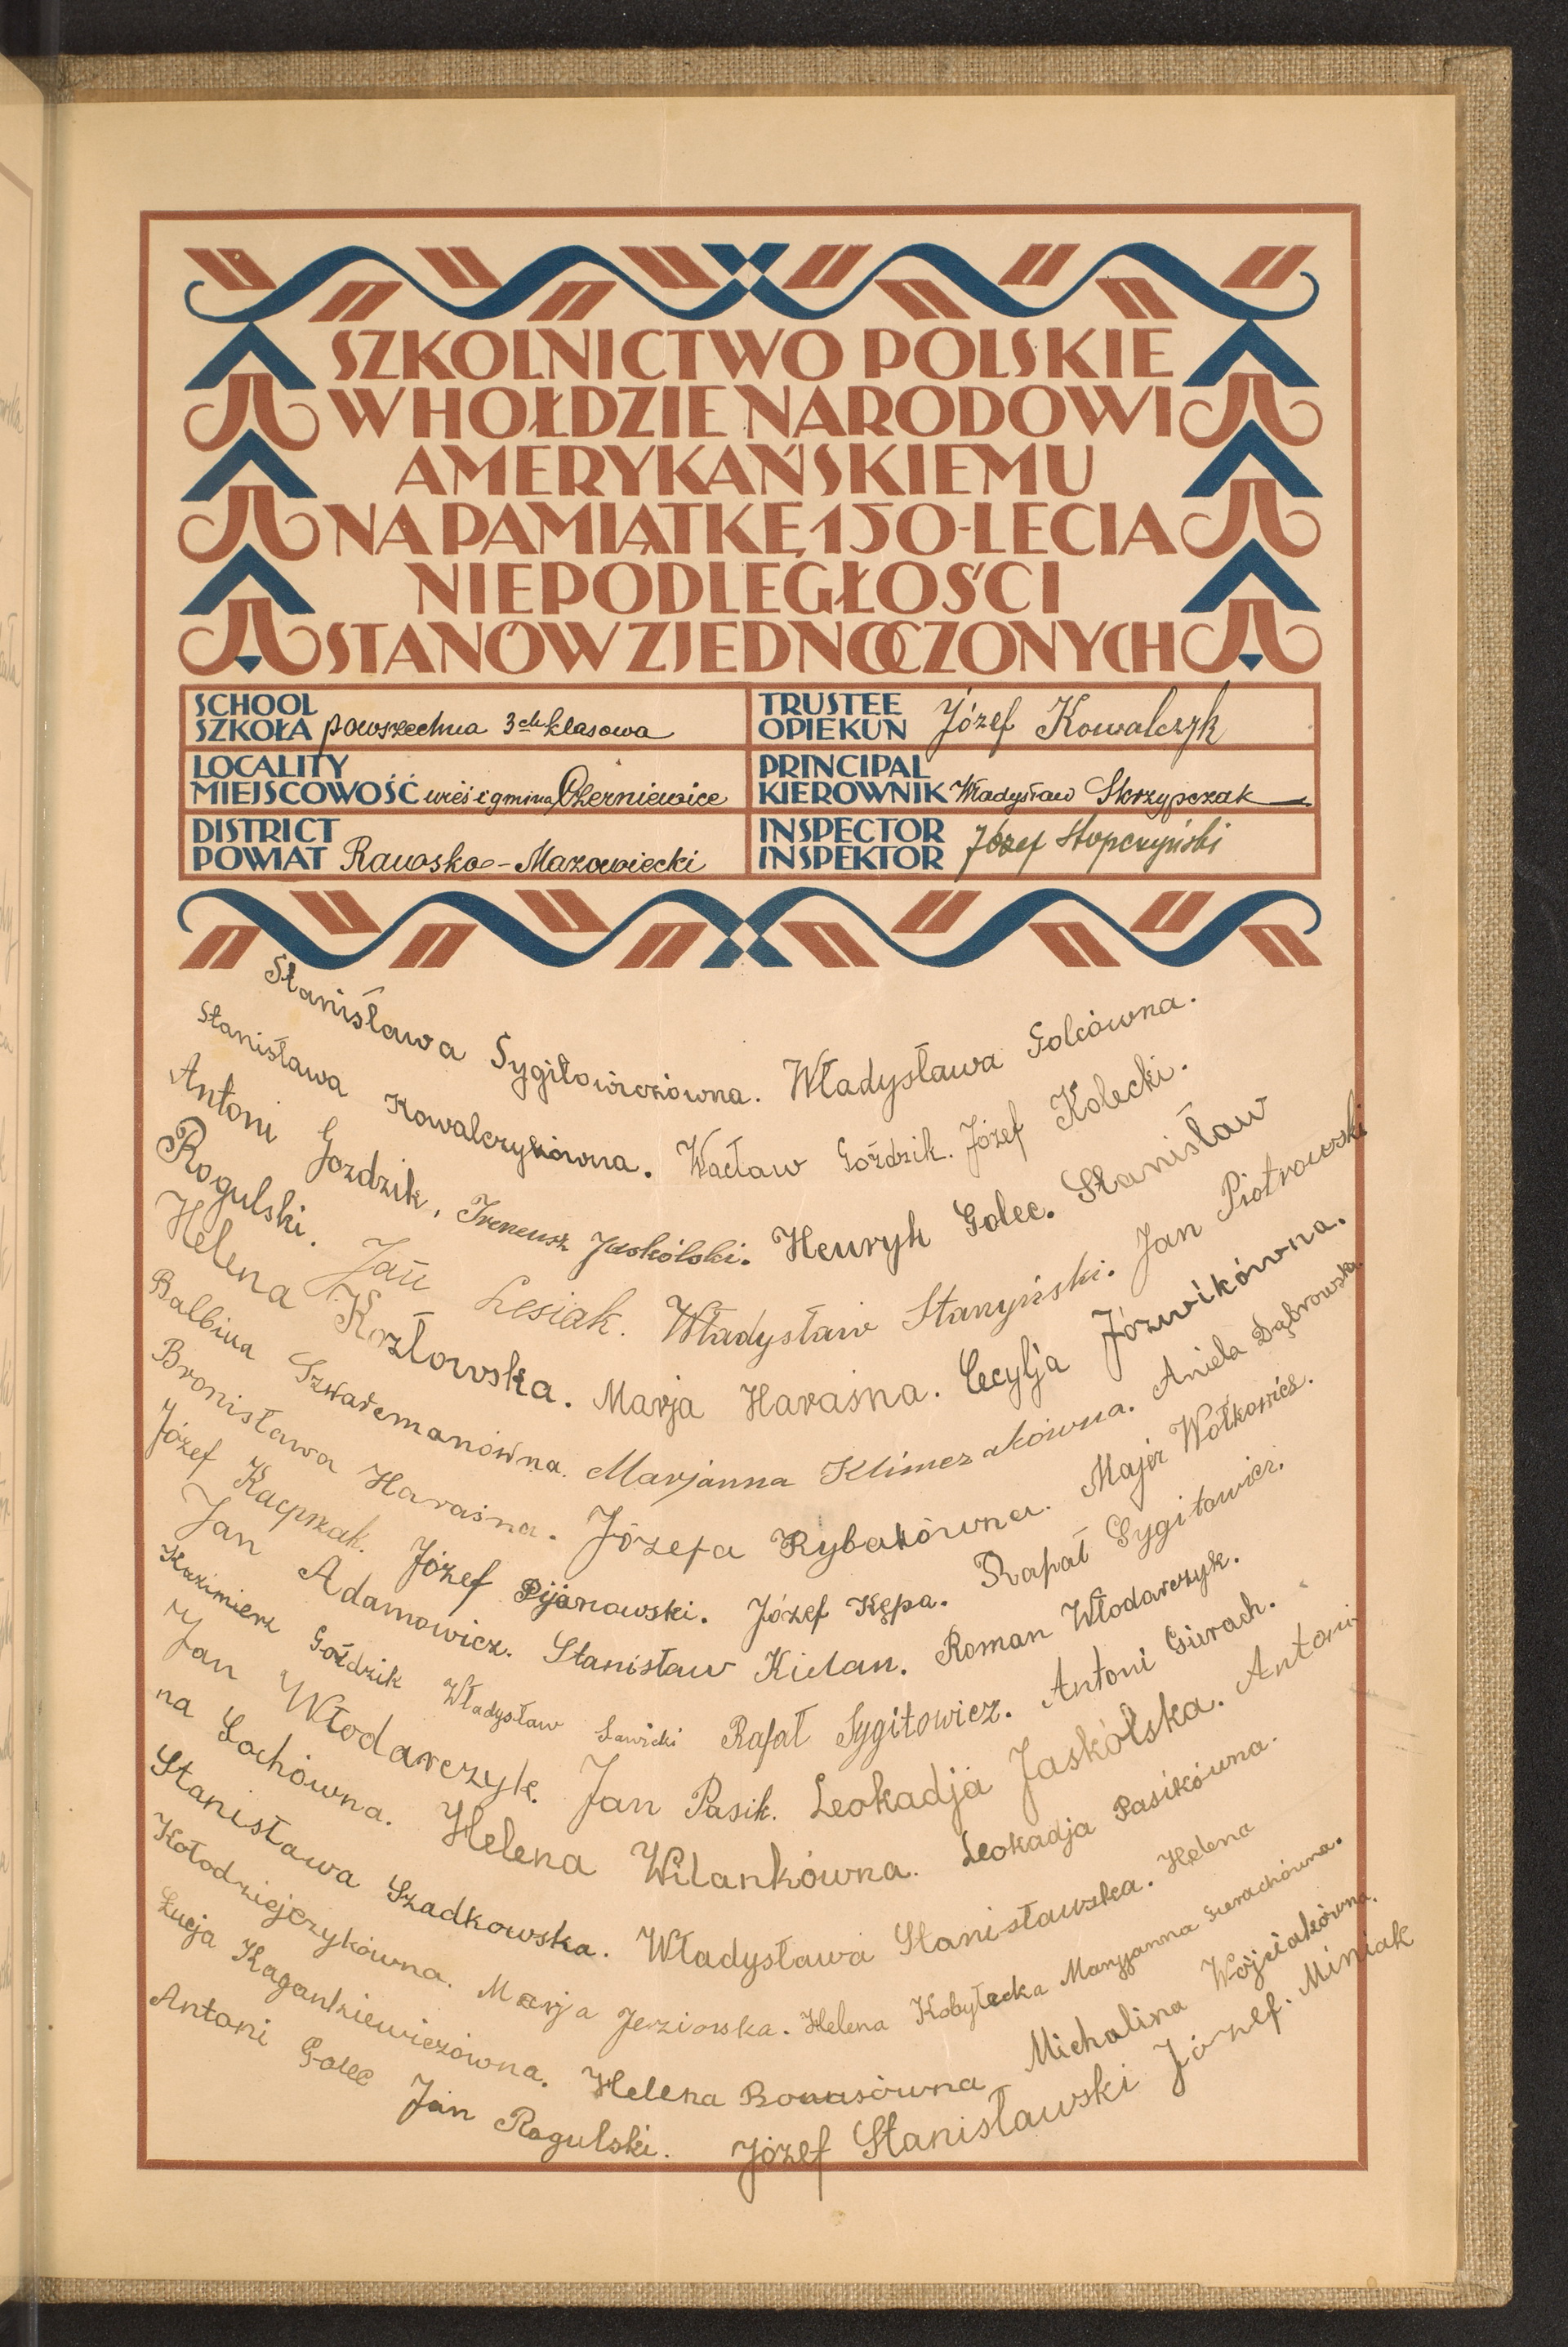 SZKOLNICTWO POLSKIE
W HOŁDZIE NARODOWI
AMERYKAŃSKIEMU
NA PAMIĄTKĘ 150-LECIA
NIEPODLEGŁOŚCI
STANÓW ZJEDNOCZONYCH
SCHOOL
SZKOŁA powszechna 3ch klasowa
TRUSTEE
OPIEKUN Józef Kowalczyk
LOCALITY
MIEJSCOWOŚĆ wieś i gmina Czerniewice
PRINCIPAL
KIEROWNIK Władysław Skrzypczak
DISTRICT
POWIAT Rawsko-Mazowiecki
INSPECTOR
INSPEKTOR Józef Stopczyński
Stanisława Sygitowiczówna. Władysława Golcówna.
Stanisława Kowalczykówna. Wacław Goździk. Józef Kolecki.
Antoni Gozdzik, Ireneusz Jaskólski. Henryk Golec. Stanisław
Rogulski. Jan Lesiak. Władysław Stanyński. Jan Piotrowski
Helena Kozłowska. Marja Haraśna. Cecylja Józwikówna.
Balbina Szwarcmanówna. Marjanna Klimczakówna. Aniela Dąbrowska.
Bronisława Haraśna. Józefa Rybakówna. Majer Wołkowicz.
Józef Kacprzak. Józef Pijanowski. Józef Kępa. Rafał Sygitowicz.
Jan Adamowicz. Stanisław Kielan. Roman Włodarczyk.
Kazimierz Goździk Władysław Sawicki Rafał Sygitowicz. Antoni Gierach.
Jan Włodarczyk. Jan Pasik. Leokadja Jaskólska. Antoni
na Lochówna. Helena Wilankówna. Leokadja Pasikówna.
Stanisława Szadkowska. Władysława Stanisławska. Helena
Kołodziejczykówna. Marja Jerziorska. Helena Kobyłecka Marjanna Gierachówna.
Łucja Kagankiewiczówna. Helena Bonasówna Michalina Wojciakówna.
Antoni Golec Jan Rogulski. Józef Stanisławski Józef. Miniak